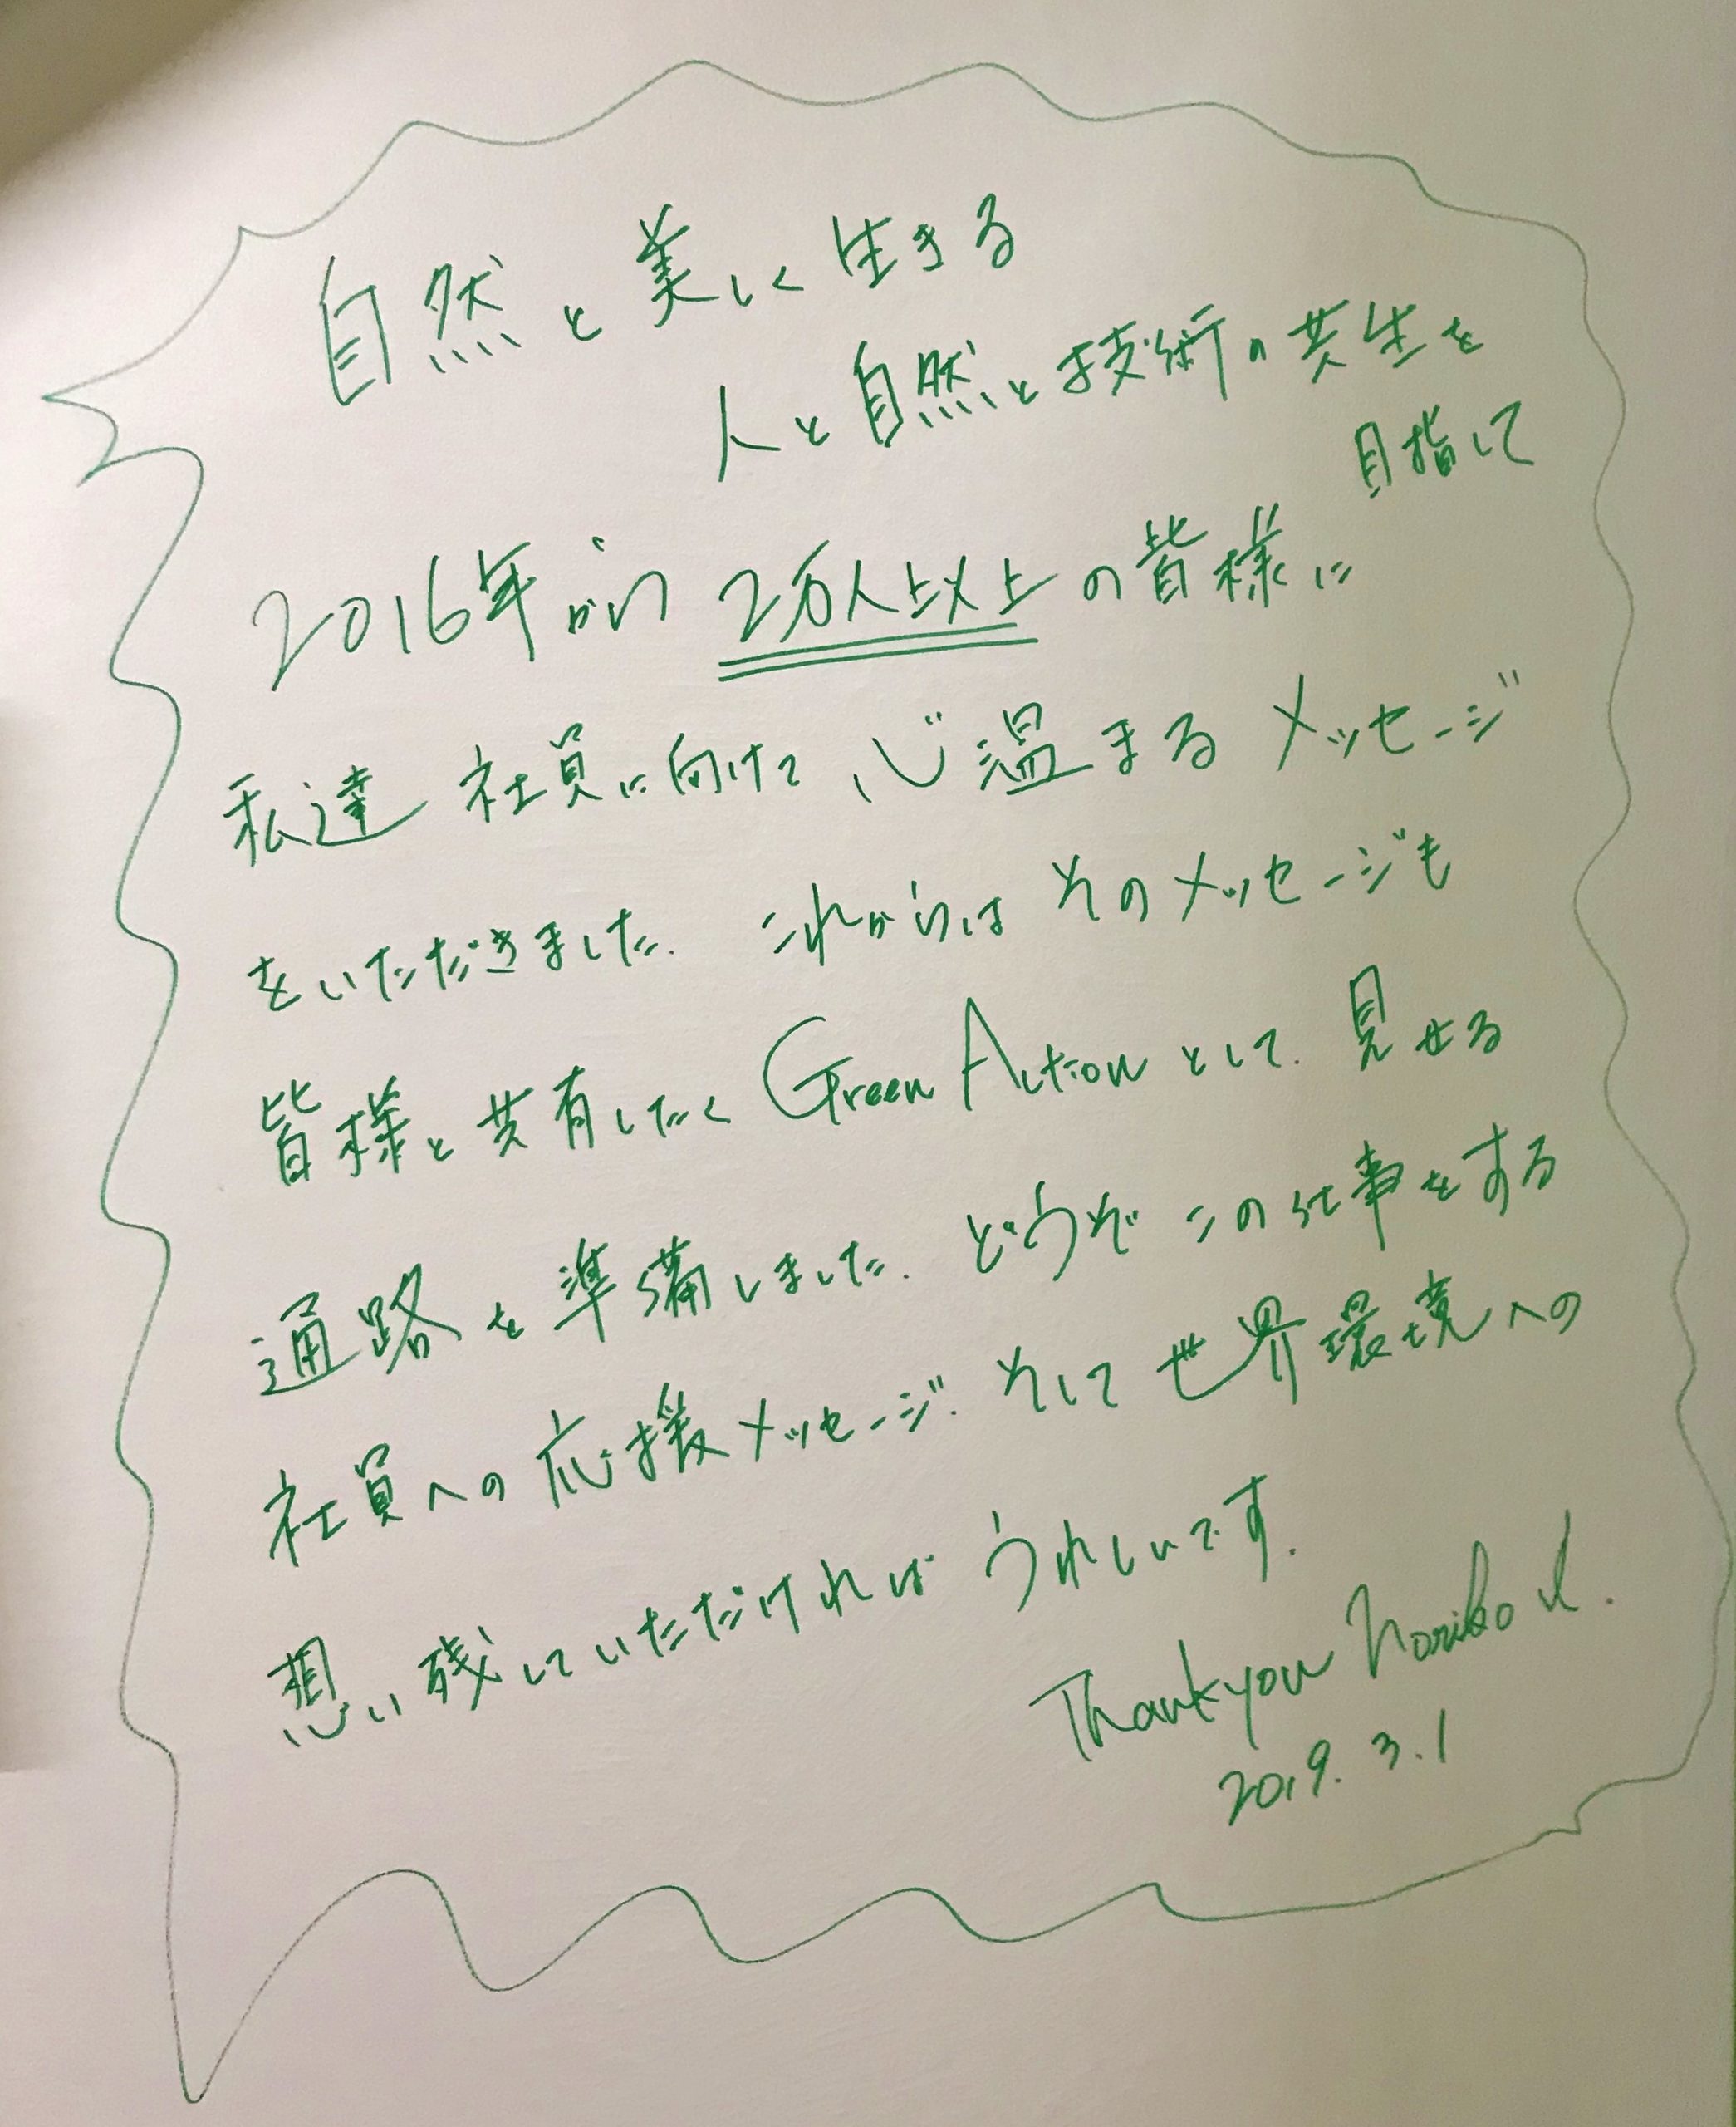 自然と美しく生きる
人と自然と技術の共生を
目指して
2016年から2万人以上の皆様に
私達 社員に向けて 心温まる メッセージ
をいただきました. これからは そのメッセージも
皆様と共有したく Green Action として. 見せる
通路を準備しました. どうぞ この仕事をする
社員への応援メッセージ. そして世界環境への
想い残していただければ うれしいです.
Thank you Noriko
2019. 3. 1